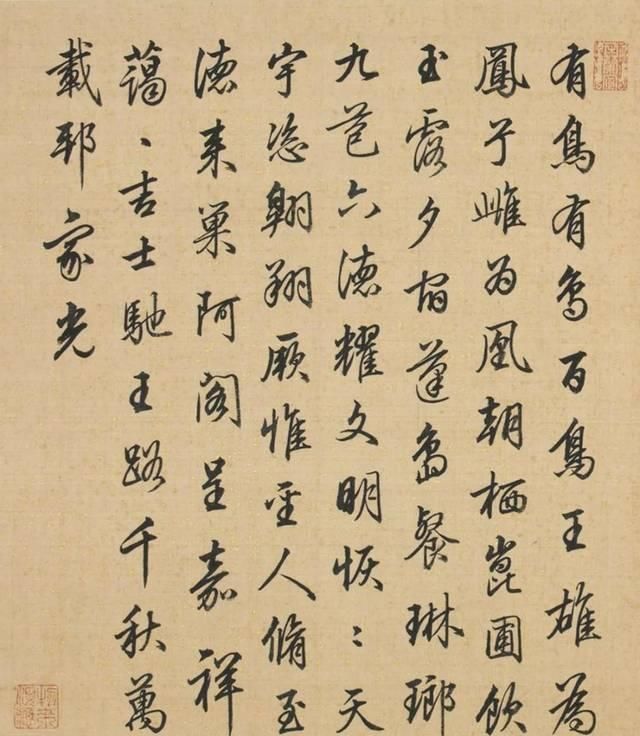 有鳥有鳥百鳥王雄為
鳳兮雌为凰朝栖崑圃飲
玉露夕宿蓬島餐琳瑯
九苞六德耀文明恢〻天
宇恣翱翔厥惟聖人脩至
德来巢阿閣呈嘉祥
藹〻吉士馳王路千秋萬
載邦家光